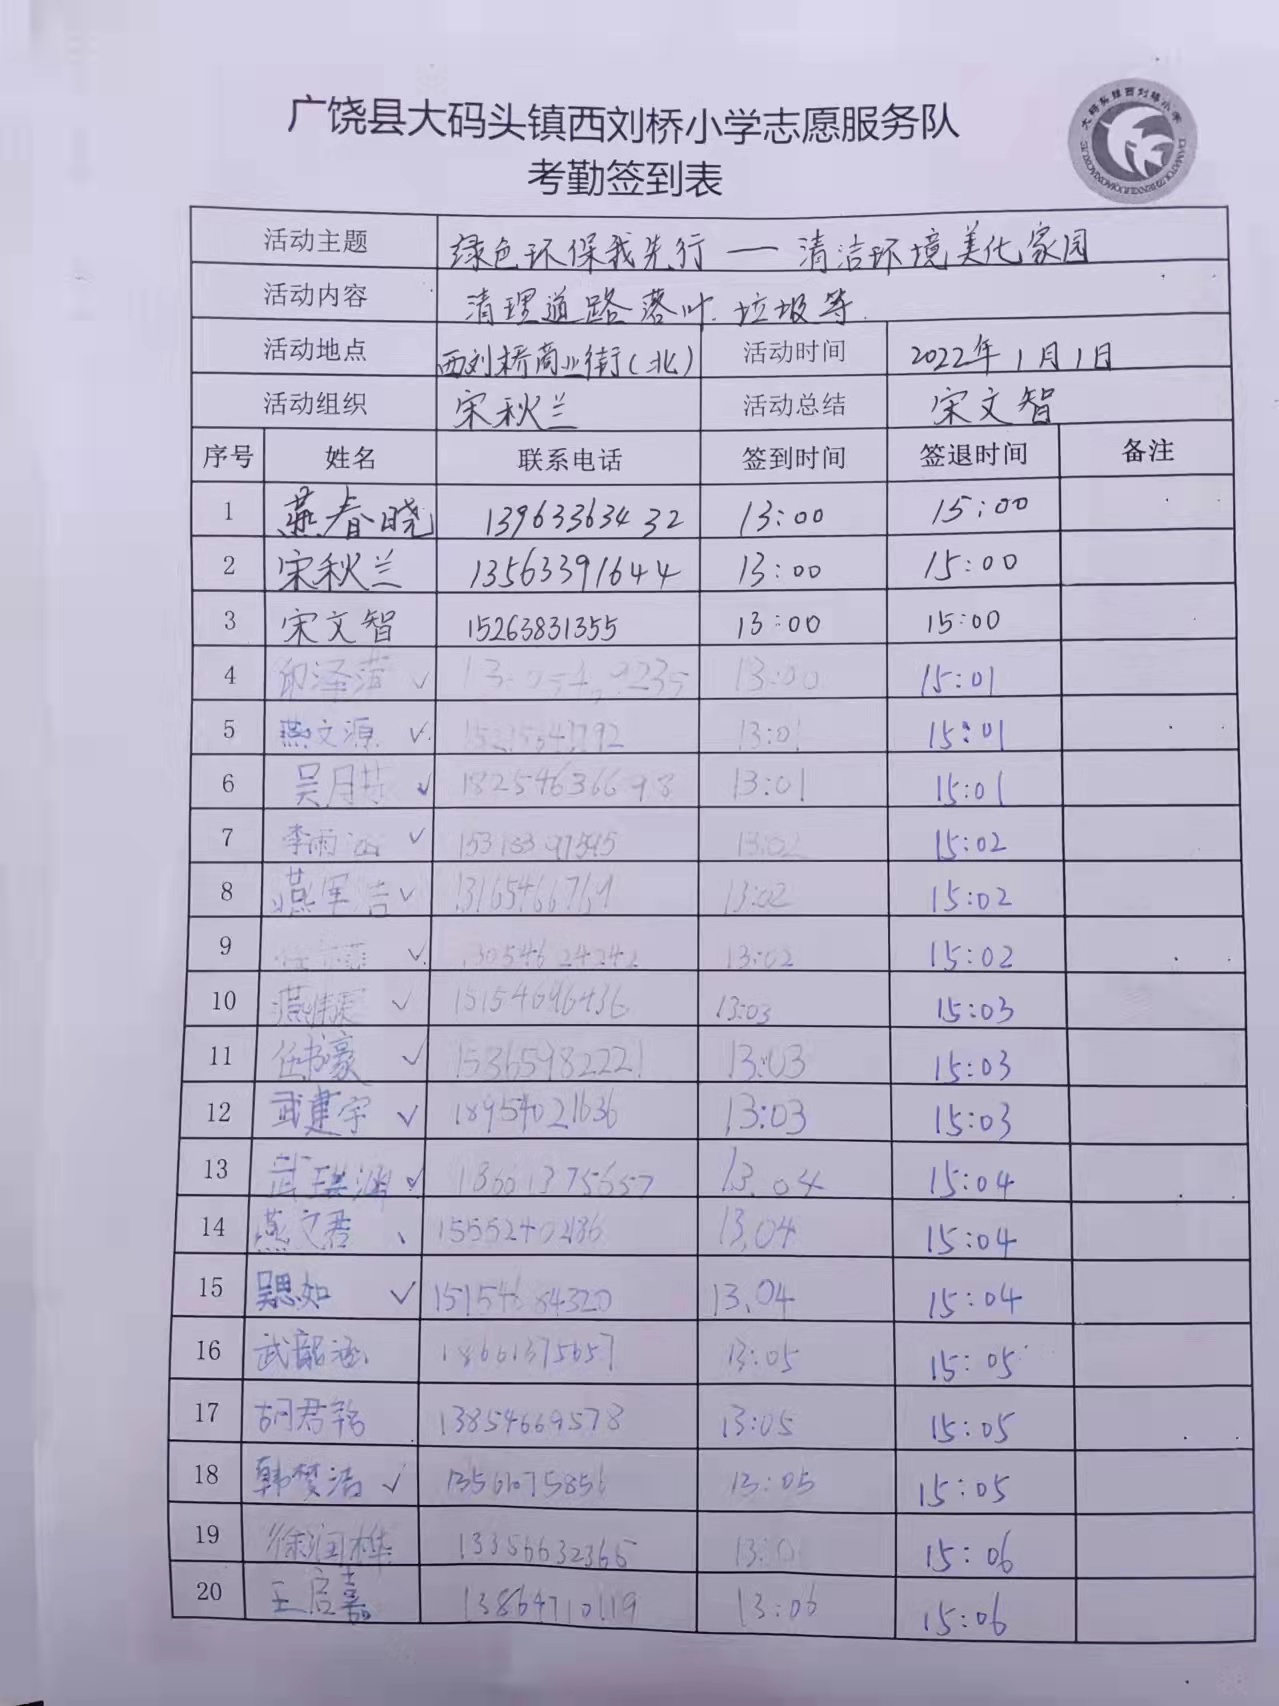 广饶县大码头镇西刘桥小学志愿服务队
考勤签到表
活动主题 绿色环保我先行 — 清洁环境美化家园
活动内容 清理道路落叶、垃圾等.
活动地点 西刘桥商业街(北) 活动时间 2022年1月1日
活动组织 宋秋兰 活动总结 宋文智
序号 姓名 联系电话 签到时间 签退时间 备注
1 燕春晓 13963363432 13:00 15:00
2 宋秋兰 13563391644 13:00 15:00
3 宋文智 15263831355 13:00 15:00
4 ✓ 13:00 15:01
5 燕文源 ✓ 13:01 15:01
6 ✓ 18254636698 13:01 15:01
7 ✓ 13:02 15:02
8 ✓ 13:02 15:02
9 ✓ 13054624242 13:02 15:02
10 ✓ 15154696436 13:03 15:03
11 任书豪 ✓ 15365982221 13:03 15:03
12 武建宇 ✓ 18954021636 13:03 15:03
13 ✓ 13.04 15:04
14 燕文君 13.04 15:04
15 吴思如 ✓ 15154684320 13.04 15:04
16 武韶涵 18661375657 13:05 15:05
17 胡君铭 13854669578 13:05 15:05
18 韩梦洁 ✓ 13:05 15:05
19 徐润桦 13356632365 15:06
20 王启嘉 13864710119 13:06 15:06